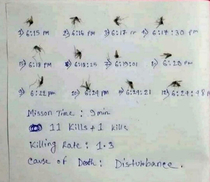 1) 6:15 pm 2) 6:16 pm 3) 6:17 4) 6:17:30 pm
5) 6:18 pm 6) 6:18:15 7) 6:19:01 8) 6:20 pm
9) 6:22 pm 10) 6:24 pm 11) 6:24:21 12) 6:24:48
Misson Time : 9 min
11 Kills + 1 Kill
Killing Rate : 1.3
Cause of Death : Disturbance.